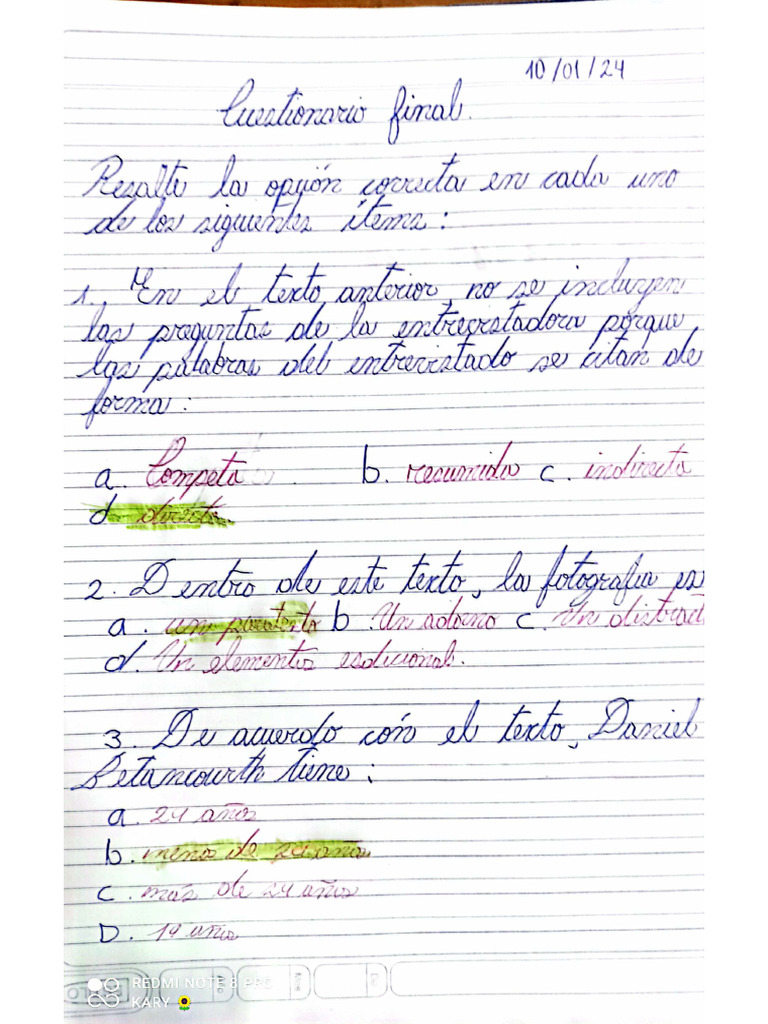 10/01/24
Cuestionario final.
Resalte la opción correcta en cada uno
de los siguientes ítems:
1. En el texto anterior, no se incluyen
las preguntas de la entrevistadora porque
las palabras del entrevistado se citan de
forma:
a. Competa b. resumida c. indirecta
d directa.
2. Dentro de este texto, la fotografia es
a. un paratexto b. Un adorno c. Un distract
d. Un elementos
3. De acuerdo cón el texto, Daniel
Betancourth tiene:
a. 24 años
b. menos de 24 años
c. más de 24 años
D. 19 años
REDMI NOTE 8 PRO
KARY 🌻